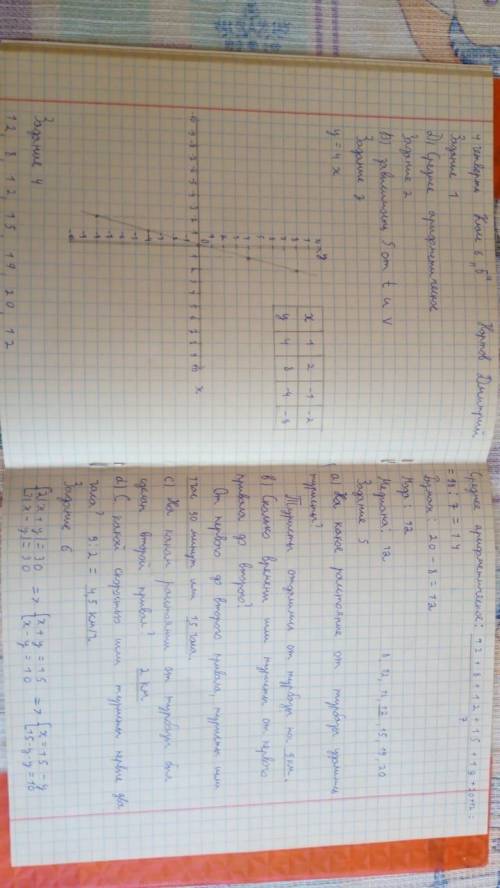 4 четверть Класс 6 "Б" Картов Дмитрий
Задание 1
D) Среднее арифметическое
Задание 2
B) зависимость S от t и v
Задание 3
y = 4x
x 1 2 -1 -2
y 4 8 -4 -8
x
Задание 4
12, 8, 12, 15, 19, 20, 12
Среднее арифметическое: 12 + 8 + 12 + 15 + 19 + 20 + 12 =
7
= 98 : 7 = 14
Размах: 20 - 8 = 12
Мода: 12
Медиана: 12 8, 12, 12, 12, 15, 19, 20
Задание 5
a) На какое расстояние от турбазы удалились
туристы?
Туристы отдалились от турбазы на 9 км.
в) Сколько времени шли туристы от первого
привала до второго?
От первого до второго привала, туристы шли
час 30 минут или 1,5 часа.
c) На каком расстоянии от турбазы был
сделан второй привал? 2 км
d) С какой скоростью шли туристы первые два
часа? 9:2 = 4,5 км/ч.
Задание 6
{2(x + y) = 30 => {x + y = 15 => {x = 15 - y
{3(x - y) = 30 {x - y = 10 {15 - y - y = 10